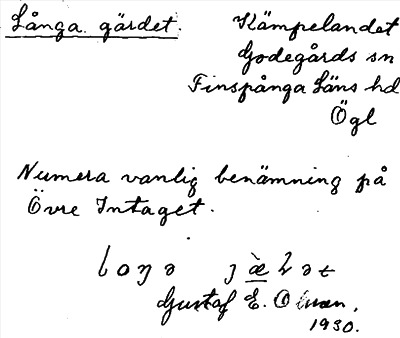 Långa gärdet.
Kämpelandet
Godegårds sn
Finspånga Läns hd
Ögl
Numera vanlig benämning på
Övre Intaget.
Gustaf E. Olsson,
1930.